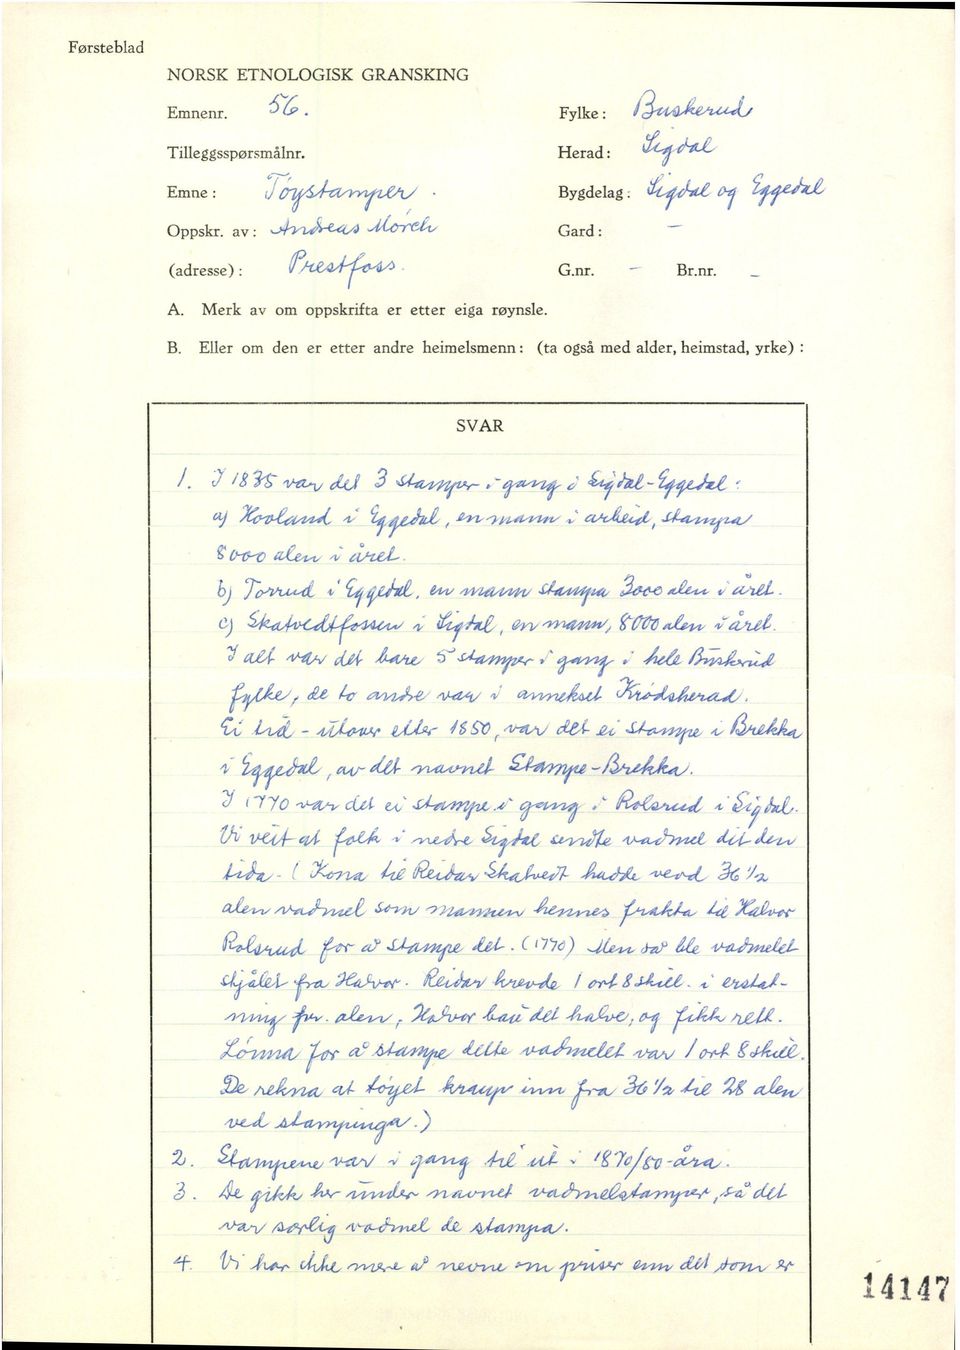 Førsteblad
NORSK ETNOLOGISK GRANSKING
Emnenr. 56.
Fylke: Buskerud
Tilleggsspørsmålnr.
Herad: Sigdal
Emne: Tøystamper.
Bygdelag: Sigdal og Eggedal
Oppskr. av: Andreas Mørch
Gard: -
(adresse): Prestfoss.
G.nr. - Br.nr. -
A. Merk av om oppskrifta er etter eiga røynsle.
B. Eller om den er etter andre heimelsmenn: (ta også med alder, heimstad, yrke):
SVAR
1. I 1835 var det 3 stamper i gang i Sigdal-Eggedal:
a) Hovland i Eggedal, en mann i arbeid, stampa
8000 alen i året.
b) Torrud i Eggedal, en mann stampa 3000 alen i året.
c) Skatvedtfossen i Sigdal, en mann, 8000 alen i året.
I alt var det bare 5 stamper i gang i hele Buskerud
fylke, de to andre var i annekset Krødsherad.
Ei tid - utover etter 1850, var det ei stampe i Brekka
i Eggedal, av det navnet Stampe-Brekka.
I 1770 var det ei stampe i gang i Rolsrud i Sigdal.
Vi veit at folk i nedre Sigdal sendte vadmel dit den
tida. (Kona til Reidar Skatvedt hadde vevd 36 1/2
alen vadmel som mannen hennes frakta til Halvor
Rolsrud for å stampe det. (1770) Men så ble vadmelet
stjålet fra Halvor. Reidar krevde 1 ort 8 skill. i erstat-
ning pr. alen, Halvor bau det halve, og fikk rett.
Lønna for å stampe dette vadmelet var 1 ort 8 skill.
De rekna at tøyet kraup inn fra 36 1/2 til 28 alen
ved stampinga.)
2. Stampene var i gang til ut i 1870/80-åra.
3. De gikk her under navnet vadmelstamper, så det
var særlig vadmel de stampa.
4. Vi har ikke mere å nevne om priser enn det som er
14147